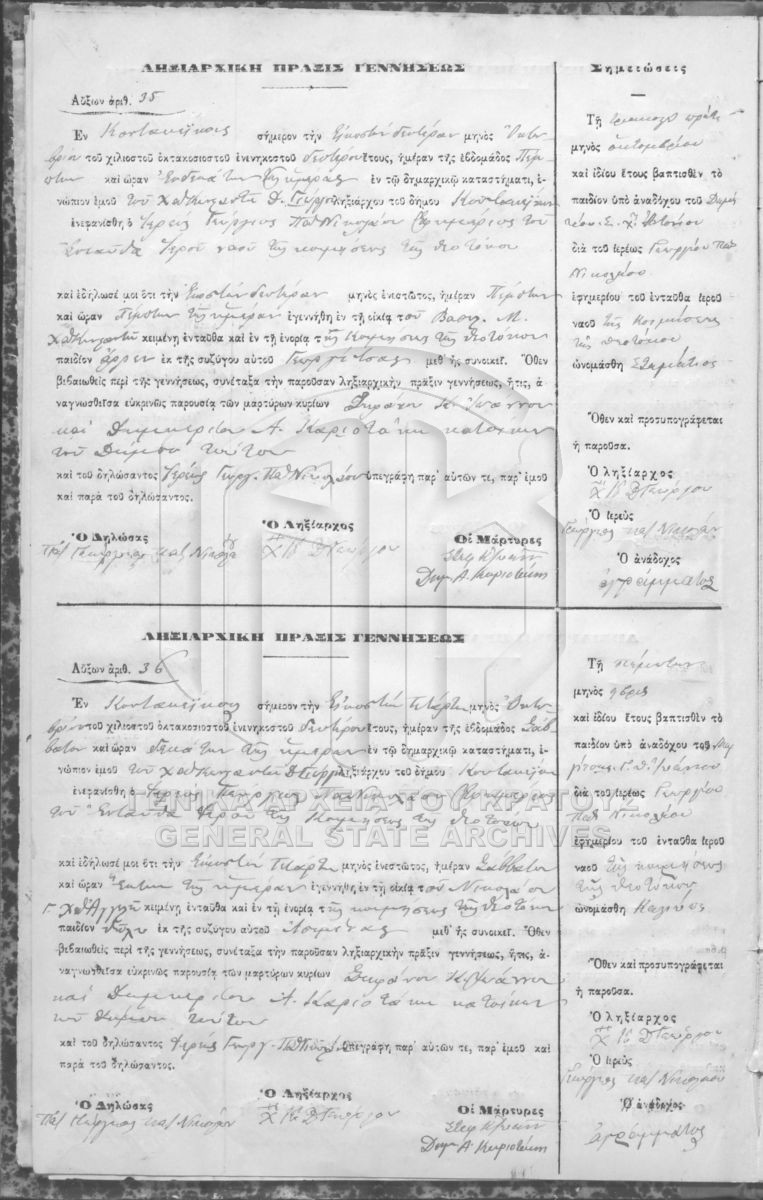 ΛΗΞΙΑΡΧΙΚΗ ΠΡΑΞΙΣ ΓΕΝΝΗΣΕΩΣ
Αὔξων ἀριθ. 35
Ἐν σήμερον τὴν Εἰκοστὴν δευτέραν μηνὸς Ὀκτω
βρίου τοῦ χιλιοστοῦ ὀκτακοσιοστοῦ ἐνενηκοστοῦ δευτέρου ἔτους, ἡμέραν τῆς ἑβδομάδος Πέμ
πτην καὶ ὥραν τῆς ἡμέρας ἐν τῷ δημαρχικῷ καταστήματι, ἐ-
νώπιον ἐμοῦ τοῦ ληξιάρχου τοῦ δήμου
ἐνεφανίσθη ὁ Ἱερεὺς Γεώργιος Παπ Νικολάου ἐφημέριος τοῦ
ἐνταῦθα ἱεροῦ ναοῦ τῆς κοιμήσεως τῆς Θεοτόκου
καὶ ἐδήλωσέ μοι ὅτι τὴν Εἰκοστὴν δευτέραν μηνὸς ἐνεστῶτος, ἡμέραν Πέμπτην
καὶ ὥραν πέμπτην τῆς ἡμέρας ἐγεννήθη ἐν τῇ οἰκίᾳ τοῦ Βασιλ. Μ.
κειμένῃ ἐνταῦθα καὶ ἐν τῇ ἐνορίᾳ τῆς Κοιμήσεως τῆς Θεοτόκου
παιδίον ἄρρεν ἐκ τῆς συζύγου αὐτοῦ Γεωργίτσας μεθ' ἧς συνοικεῖ. Ὅθεν
βιβαιωθεὶς περὶ τῆς γεννήσεως, συνέταξα τὴν παροῦσαν ληξιαρχικὴν πρᾶξιν γεννήσεως, ἥτις, ἀ-
ναγνωσθεῖσα εὐκρινῶς παρουσίᾳ τῶν μαρτύρων κυρίων Στεφάνου Κ. Ἰωάννου
καὶ Δημητρίου Α. Καριοτάκη κατοίκων
τοῦ Δήμου τούτου
καὶ τοῦ δηλώσαντος Ἱερέως Γεωργ. Παπ Νικολάου ὑπεγράφη παρ' αὐτῶν τε, παρ' ἐμοῦ
καὶ παρὰ τοῦ δηλώσαντος.
Ὁ Δηλώσας Ὁ Ληξίαρχος Οἱ Μάρτυρες
Παπ Γεώργιος παπ Νικολάου
Δημ. Α. Καριοτάκης
Σημειώσεις
Τῇ τριακοστῇ πρώτῃ
μηνὸς ὀκτωβρίου
καὶ ἰδίου ἔτους βαπτισθὲν τὸ
παιδίον ὑπὸ ἀναδόχου τοῦ Δημη
τρίου
διὰ τοῦ ἱερέως Γεωργίου Παπ
Νικολάου
ἐφημερίου τοῦ ἐνταῦθα ἱεροῦ
ναοῦ τῆς Κοιμήσεως
τῆς Θεοτόκου
ὠνομάσθη Σταμάτιος
Ὅθεν καὶ προσυπογράφεται
ἡ παροῦσα.
Ὁ ληξίαρχος
Ὁ Ιερεὺς
Γεώργιος παπ Νικολάου
Ὁ ἀνάδοχος
ἀγράμματος
ΛΗΞΙΑΡΧΙΚΗ ΠΡΑΞΙΣ ΓΕΝΝΗΣΕΩΣ
Αὔξων ἀριθ. 36
Ἐν σήμερον τὴν Εἰκοστὴν τετάρτην μηνὸς Ὀκτω
βρίου τοῦ χιλιοστοῦ ὀκτακοσιοστοῦ ἐνενηκοστοῦ δευτέρου ἔτους, ἡμέραν τῆς ἑβδομάδος Σάβ
βατον καὶ ὥραν δεκάτην τῆς ἡμέρας ἐν τῷ δημαρχικῷ καταστήματι, ἐ-
νώπιον ἐμοῦ τοῦ ληξιάρχου τοῦ δήμου
ἐνεφανίσθη ὁ Ἱερεὺς Γεώργιος Παπ Νικολάου ἐφημέριος
τοῦ ἐνταῦθα ἱεροῦ τῆς Κοιμήσεως τῆς Θεοτόκου
ΓΕΝΙΚΑ ΑΡΧΕΙΑ ΤΟΥ ΚΡΑΤΟΥΣ
GENERAL STATE ARCHIVES
καὶ ἐδήλωσέ μοι ὅτι τὴν Εἰκοστὴν τετάρτην μηνὸς ἐνεστῶτος, ἡμέραν Σάββατον
καὶ ὥραν ἕκτην τῆς ἡμέρας ἐγεννήθη ἐν τῇ οἰκίᾳ τοῦ Νικολάου
κειμένῃ ἐνταῦθα καὶ ἐν τῇ ἐνορίᾳ τῆς κοιμήσεως τῆς Θεοτόκου
παιδίον θῆλυ ἐκ τῆς συζύγου αὐτοῦ μεθ' ἧς συνοικεῖ. Ὅθεν
βιβαιωθεὶς περὶ τῆς γεννήσεως, συνέταξα τὴν παροῦσαν ληξιαρχικὴν πρᾶξιν γεννήσεως, ἥτις, ἀ-
ναγνωσθεῖσα εὐκρινῶς παρουσίᾳ τῶν μαρτύρων κυρίων Στεφάνου Κ. Ἰωάννου
καὶ Δημητρίου Α. Καριοτάκη κατοίκων
τοῦ Δήμου τούτου
καὶ τοῦ δηλώσαντος Ἱερέως Γεωργ. Παπ Νικολάου ὑπεγράφη παρ' αὐτῶν τε, παρ' ἐμοῦ καὶ
παρὰ τοῦ δηλώσαντος.
Ὁ Δηλώσας Ὁ Ληξίαρχος Οἱ Μάρτυρες
Παπ Γεώργιος παπ Νικολάου
Δημ. Α. Καριοτάκης
Τῇ πέμπτῃ
μηνὸς 9βρίου
καὶ ἰδίου ἔτους βαπτισθὲν τὸ
παιδίον ὑπὸ ἀναδόχου τοῦ
διὰ τοῦ ἱερέως Γεωργίου
Παπ Νικολάου
ἐφημερίου τοῦ ἐνταῦθα ἱεροῦ
ναοῦ τῆς κοιμήσεως
τῆς Θεοτόκου
ὠνομάσθη
Ὅθεν καὶ προσυπογράφεται
ἡ παροῦσα.
Ὁ ληξίαρχος
Ὁ Ιερεὺς
Γεώργιος παπ Νικολάου
Ὁ ἀνάδοχος
ἀγράμματος